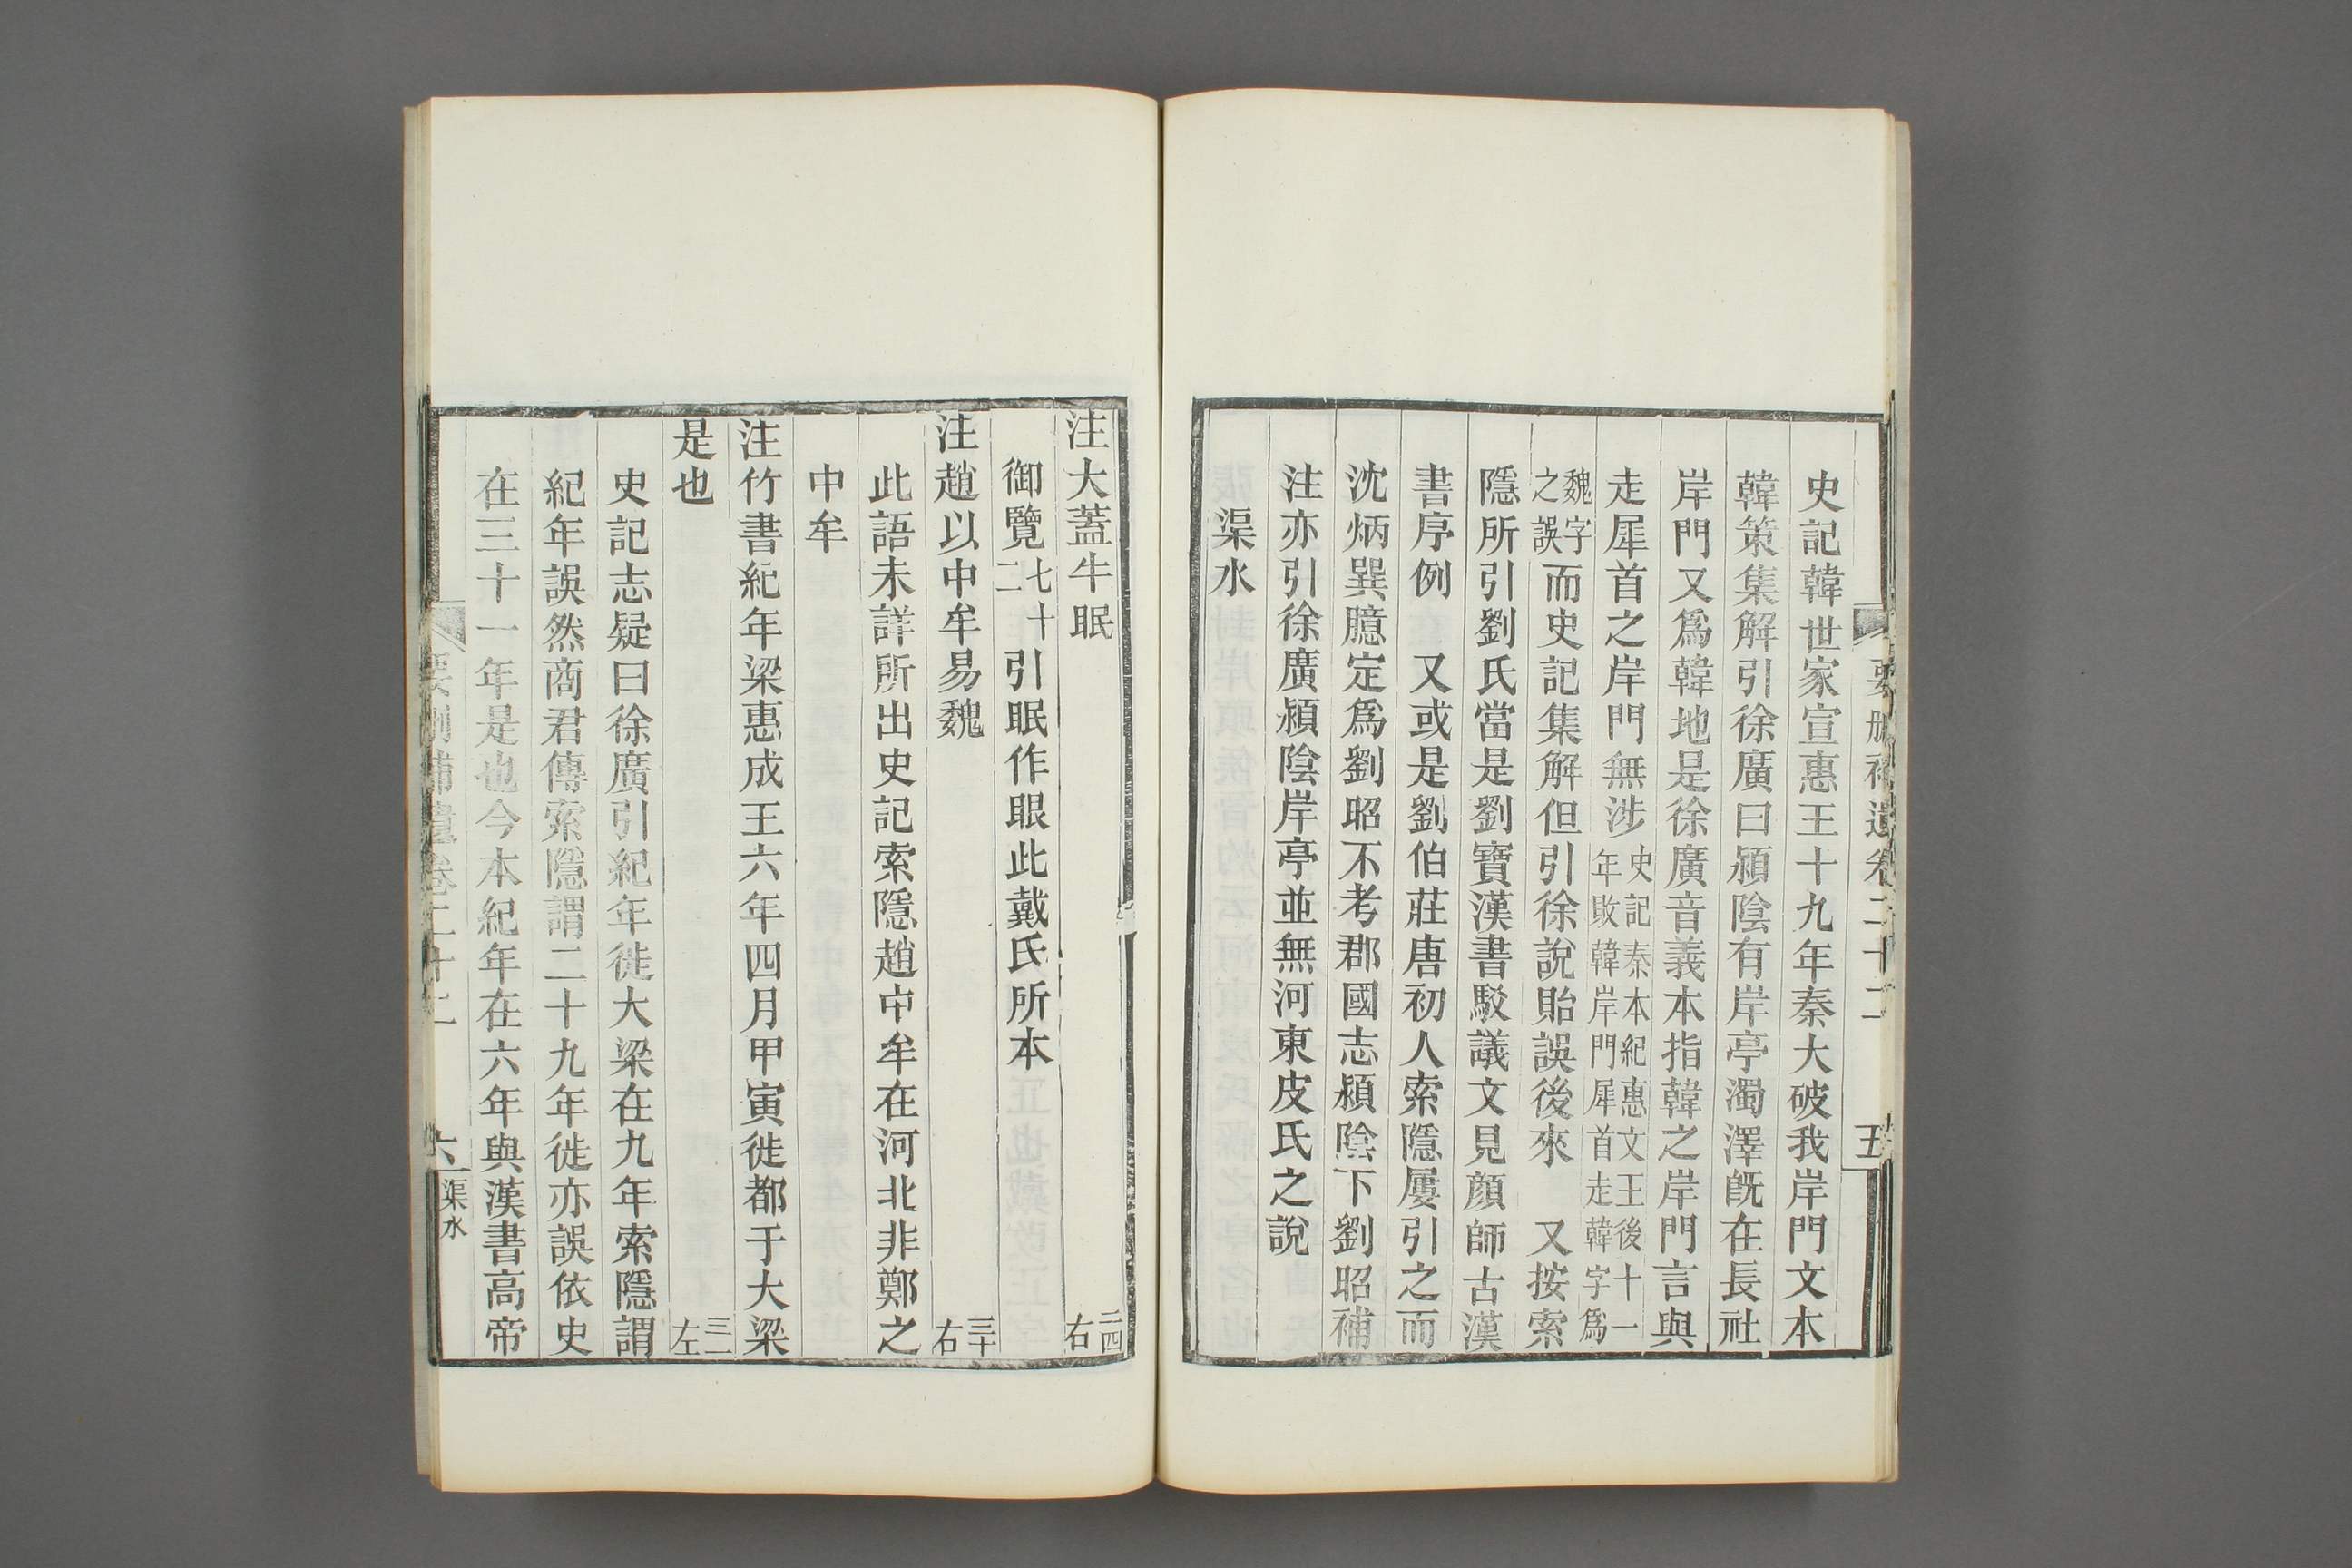 要刪補遺卷二十二
五
史記韓世家宣惠王十九年秦大破我岸門文本
韓策集解引徐廣曰潁陰有岸亭濁澤旣在長社
岸門又爲韓地是徐廣音義本指韓之岸門言與
走犀首之岸門無涉史記秦本紀惠文王後十一年敗韓岸門犀首走韓字爲
魏字之誤而史記集解但引徐說貽誤後來　又按索
隱所引劉氏當是劉寶漢書駁議文見顏師古漢
書序例　又或是劉伯莊唐初人索隱屢引之而
沈炳巽臆定爲劉昭不考郡國志潁陰下劉昭補
注亦引徐廣潁陰岸亭並無河東皮氏之說
渠水
注大蓋牛眠
二四右
御覽七十二引眠作眼此戴氏所本
注趙以中牟易魏
三十右
此語未詳所出史記索隱趙中牟在河北非鄭之
中牟
注竹書紀年梁惠成王六年四月甲寅徙都于大梁
是也
三一左
史記志疑曰徐廣引紀年徙大梁在九年索隱謂
紀年誤然商君傳索隱謂二十九年徙亦誤依史
在三十一年是也今本紀年在六年與漢書高帝
要刪補遺卷二十二
六
渠水